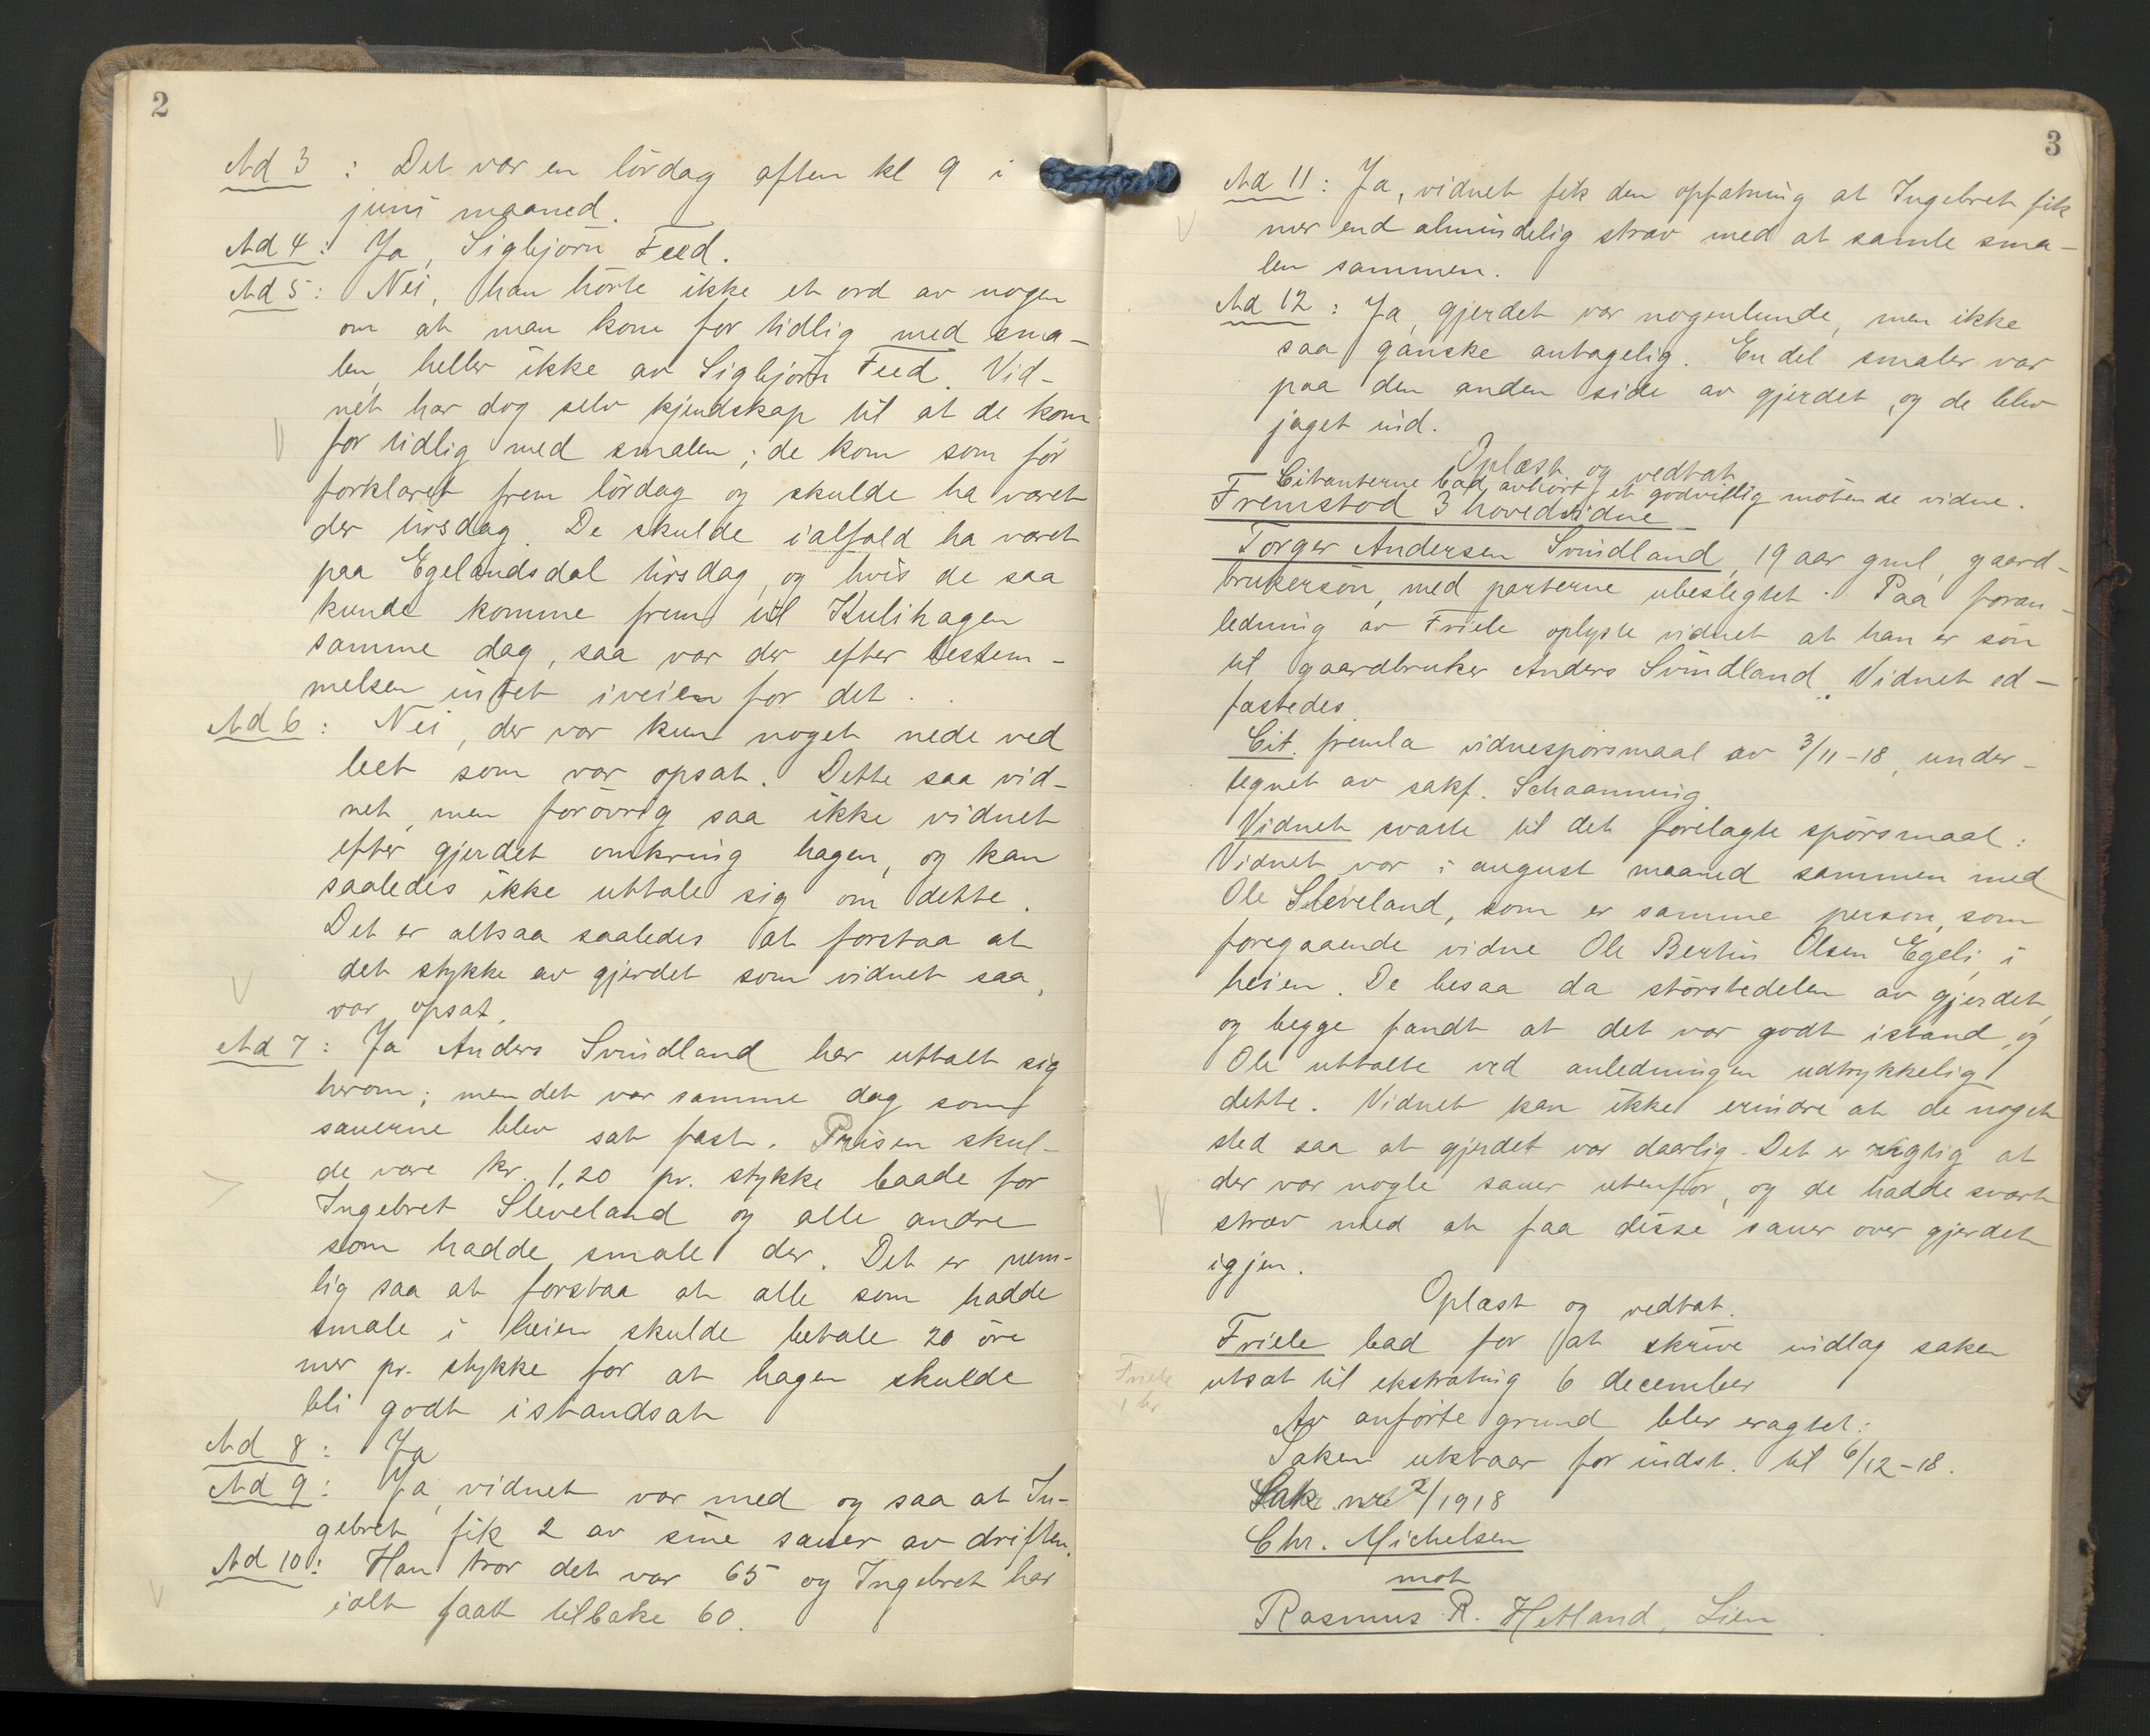 2
Ad 3 : Det var en lördag aften kl 9 i
juni maaned.
Ad 4 : Ja, Sigbjörn Feed.
Ad 5 : Nei, han hörte ikke et ord av nogen
om at man kom for tidlig med sma-
len, heller ikke av Sigbjörn Feed. Vid-
net har dog selv kjendskap til at de kom
for tidlig med smalen; de kom som för
forklaret frem lördag og skulde ha været
der tirsdag. De skulde ialfald ha været
paa Egelandsdal tirsdag, og hvis de saa
kunde komme frem til Kulihagen
samme dag, saa var der efter bestem-
melsen intet iveien for det.
Ad 6 : Nei, der var kun noget nede ved
leet som var opsat. Dette saa vid-
net, men forövrig saa ikke vidnet
efter gjerdet omkring hagen, og kan
saaledes ikke uttale sig om dette.
Det er altsaa saaledes at forstaa at
det stykke av gjerdet som vidnet saa,
var opsat.
Ad 7 : Ja Anders Svindland har uttalt sig
herom; men det var samme dag som
sauerne blev sat fast. Prisen skul-
de være kr. 1,20 pr. stykke baade for
Ingebret Sleveland og alle andre
som hadde smale der. Det er nem-
lig saa at forstaa at alle som hadde
smale i heien skulde betale 20 öre
mer pr. stykke for at hagen skulde
bli godt istandsat
Ad 8 : Ja
Ad 9 : Ja, vidnet var med og saa at In-
gebret fik 2 av sine sauer av driften.
Ad 10 : Han tror det var 65 og Ingebret har
ialt faat tilbake 60.
3
Ad 11 : Ja, vidnet fik den opfatning at Ingebret fik
mer end almindelig stræv med at samle sma-
len sammen.
Ad 12 : Ja, gjerdet var nogenlunde, men ikke
saa ganske antagelig. En del smaler var
paa den anden side av gjerdet, og de blev
jaget ind.
Oplæst og vedtat
Citanterne bad avhört et godvillig mötende vidne.
Fremstod 3 hovedvidne
Torger Andersen Svindland, 19 aar gml, gaard-
brukersön, med parterne ubeslegtet. Paa foran-
ledning av Friele oplyste vidnet at han er sön
til gaardbruker Anders Svindland. Vidnet ed-
fæstedes.
Cit. fremla vidnespörsmaal av 3/11-18, under-
tegnet av sakf. Schaanning.
Vidnet svarte til det forelagte spörsmaal:
Vidnet var i august maaned sammen med
Ole Sleveland, som er samme person, som
foregaaende vidne Ole Bertin Olsen Egeli, i
heien. De besaa da störstedelen av gjerdet,
og begge fandt at det var godt istand, og
Ole uttalte ved anledningen udtrykkelig
dette. Vidnet kan ikke erindre at de noget
sted saa at gjerdet var daarlig. Det er rigtig at
der var nogle sauer utenfor, og de hadde svært
stræv med at faa disse sauer over gjerdet
igjen.
Oplæst og vedtat.
Friele bad for at skrive indlag saken
utsat til ekstratnig 6 december
Friele
1 kr
Av anförte grund blev eragtet:
Saken utstaar for indst. til 6/12-18.
Sak nr 2/1918
Chr. Michelsen
mot
Rasmus R. Hetland, Lien